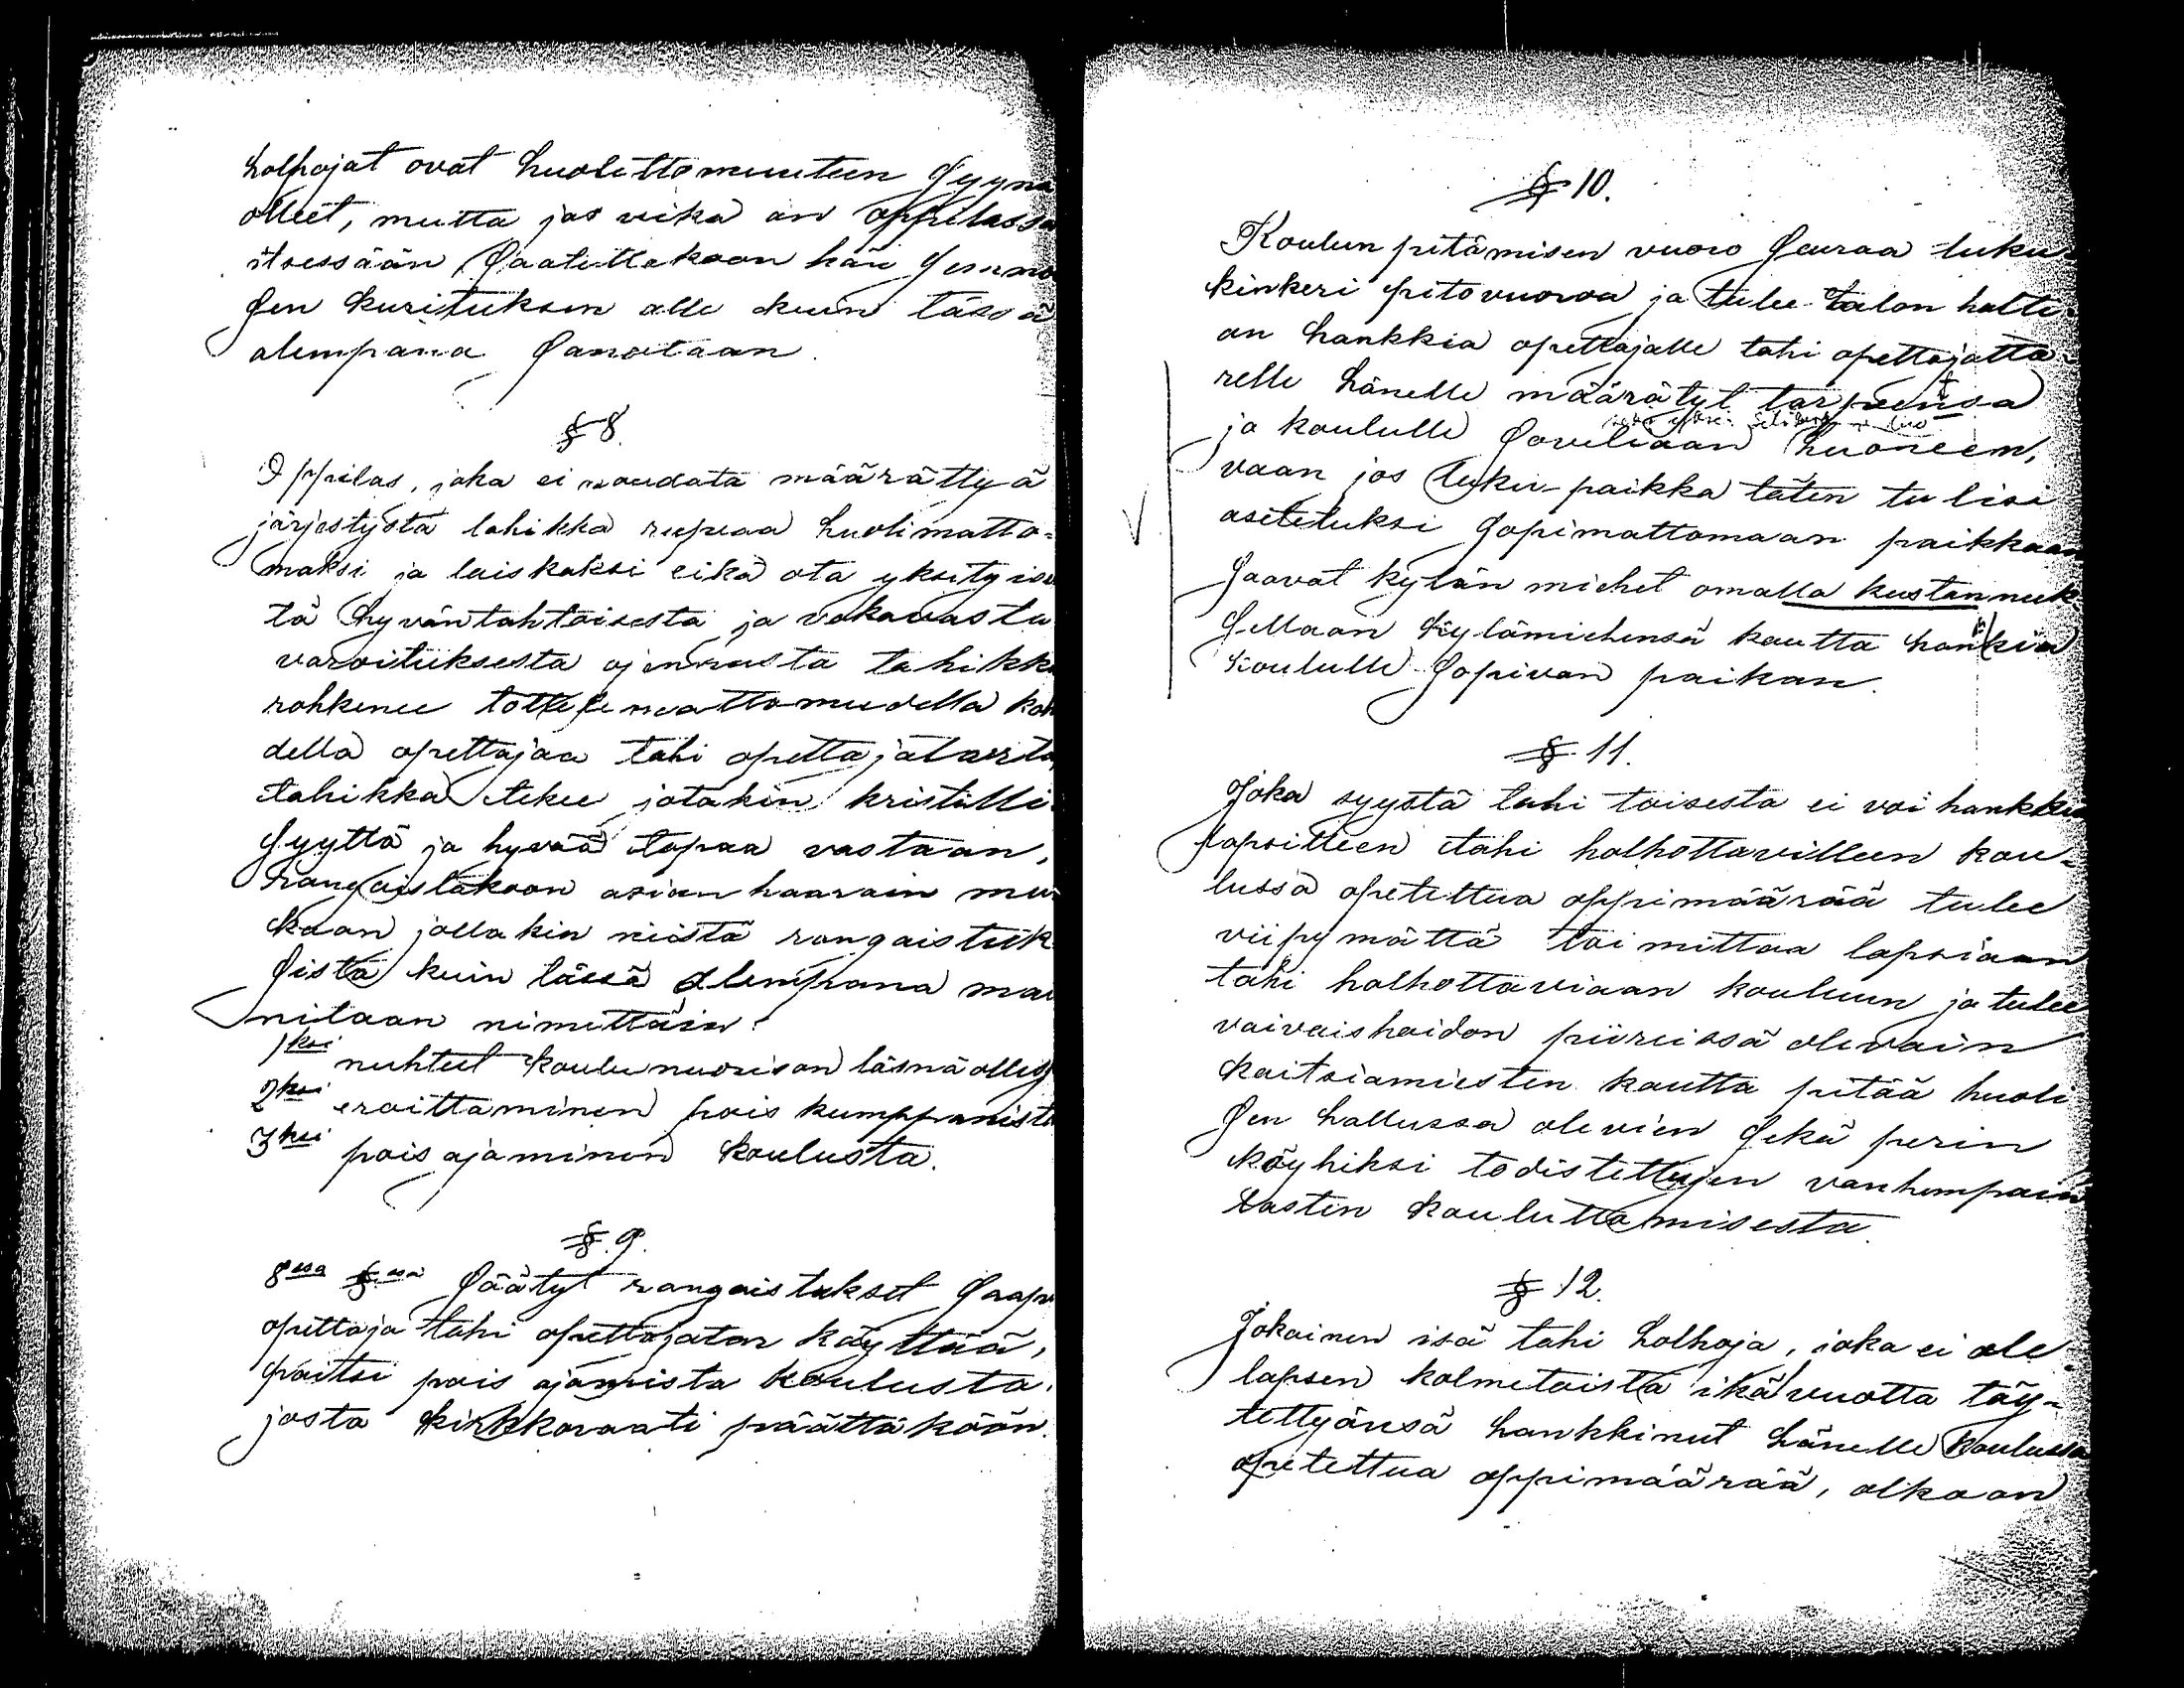 holhojat ovat huolettomuuteen syynä
olleet, mutta jos vika on oppilassa
itsessään saatettakoon hän semmo
sen kurituksen alle kuin tässä
alempana sanotaan.
§ 8.
Oppilas, joka ei noudata määrättyä
järjestystä tahikka rupeaa huolimatto-
maksi ja laiskaksi eikä ota yksityise
tä hyväntahtoisesta ja vakavasta
varoituksesta ojennusta tahikka
rohkenee tottelemattomuudella koh
della opettajaa tahi opettajatarta
tahikka tekee jotakin kristilli-
syyttä ja hyvää tapaa vastaan,
rangaistakoon asian haarain mu-
kaan jollakin niistä rangaistuk
sista kuin tässä alempana mai
nitaan nimittäin:
1ksi nuhteet koulunuorison läsnä olless
2ksi eroittaminen pois kumppanista
3ksi pois ajaminen koulusta.
§. 9.
8ssa §ssa säätyt rangaistukset saapi
opettaja tahi opettajatar käyttää,
paitsi pois ajamista koulusta,
josta kirkkoraati päättäköön.
§ 10.
Koulun pitämisen vuoro seuraa luku-
kinkeri pitovuoroa ja tulee talon halti-
an hankkia opettajalle tahi opettajatta-
relle hänelle määrätyt tarpeensa
ja koululle soveliaan huoneem,
vaan jos luku-paikka täten tulisi
asetetuksi sopimattomaan paikkaan
saavat kylän miehet omalla kustannuk-
sellaan kylämiehensä kautta hankkia
koululle sopivan paikan.
§. 11.
Joka syystä tahi toisesta ei voi hankkia
lapsilleen tahi holhottavilleen kou-
lussa opetettua oppimäärää tulee
viipymättä toimittaa lapsiaan
tahi holhottaviaan kouluun ja tulee
vaivaishoidon piireissä olevain
kaitsiamiesten kautta pitää huoli
sen hallussa olevien sekä perin
köyhiksi todistettujen vanhempain
lasten kouluttamisesta.
§ 12.
Jokainen isä tahi holhoja, joka ei ole
lapsen kolmetoista ikävuotta täy-
tettyänsä hankkinut hänelle koulussa
opetettua oppimäärää, olkoon